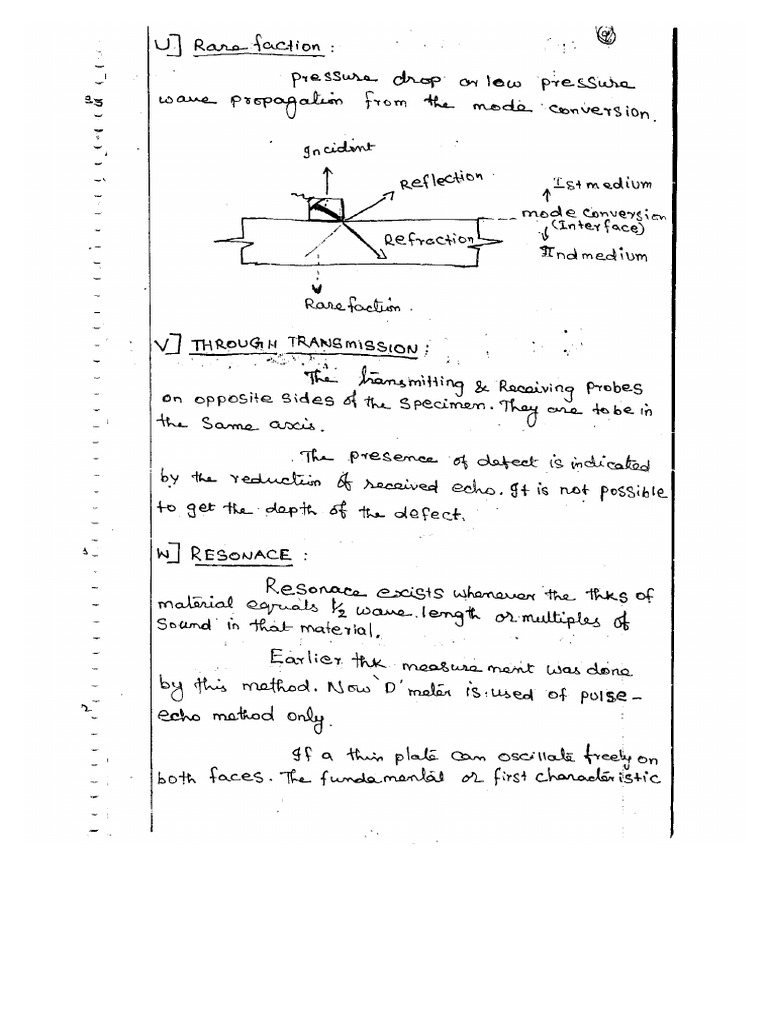 U] Rarefaction :
pressure drop or low pressure
wave propagation from the mode conversion.
Incident
Reflection
Ist medium
mode conversion
(Interface)
Refraction
IInd medium
Rarefaction.
V] THROUGH TRANSMISSION :
The transmitting & Receiving probes
on opposite sides of the specimen. They are to be in
the same axis.
The presence of defect is indicated
by the reduction of received echo. It is not possible
to get the depth of the defect.
W] RESONACE :
Resonace exists whenever the thks of
material equals 1/2 wave.length or multiples of
sound in that material.
Earlier thk measurement was done
by this method. Now 'D' meter is used of pulse-
echo method only.
If a thin plate can oscillate freely on
both faces. The fundamental or first characteristic